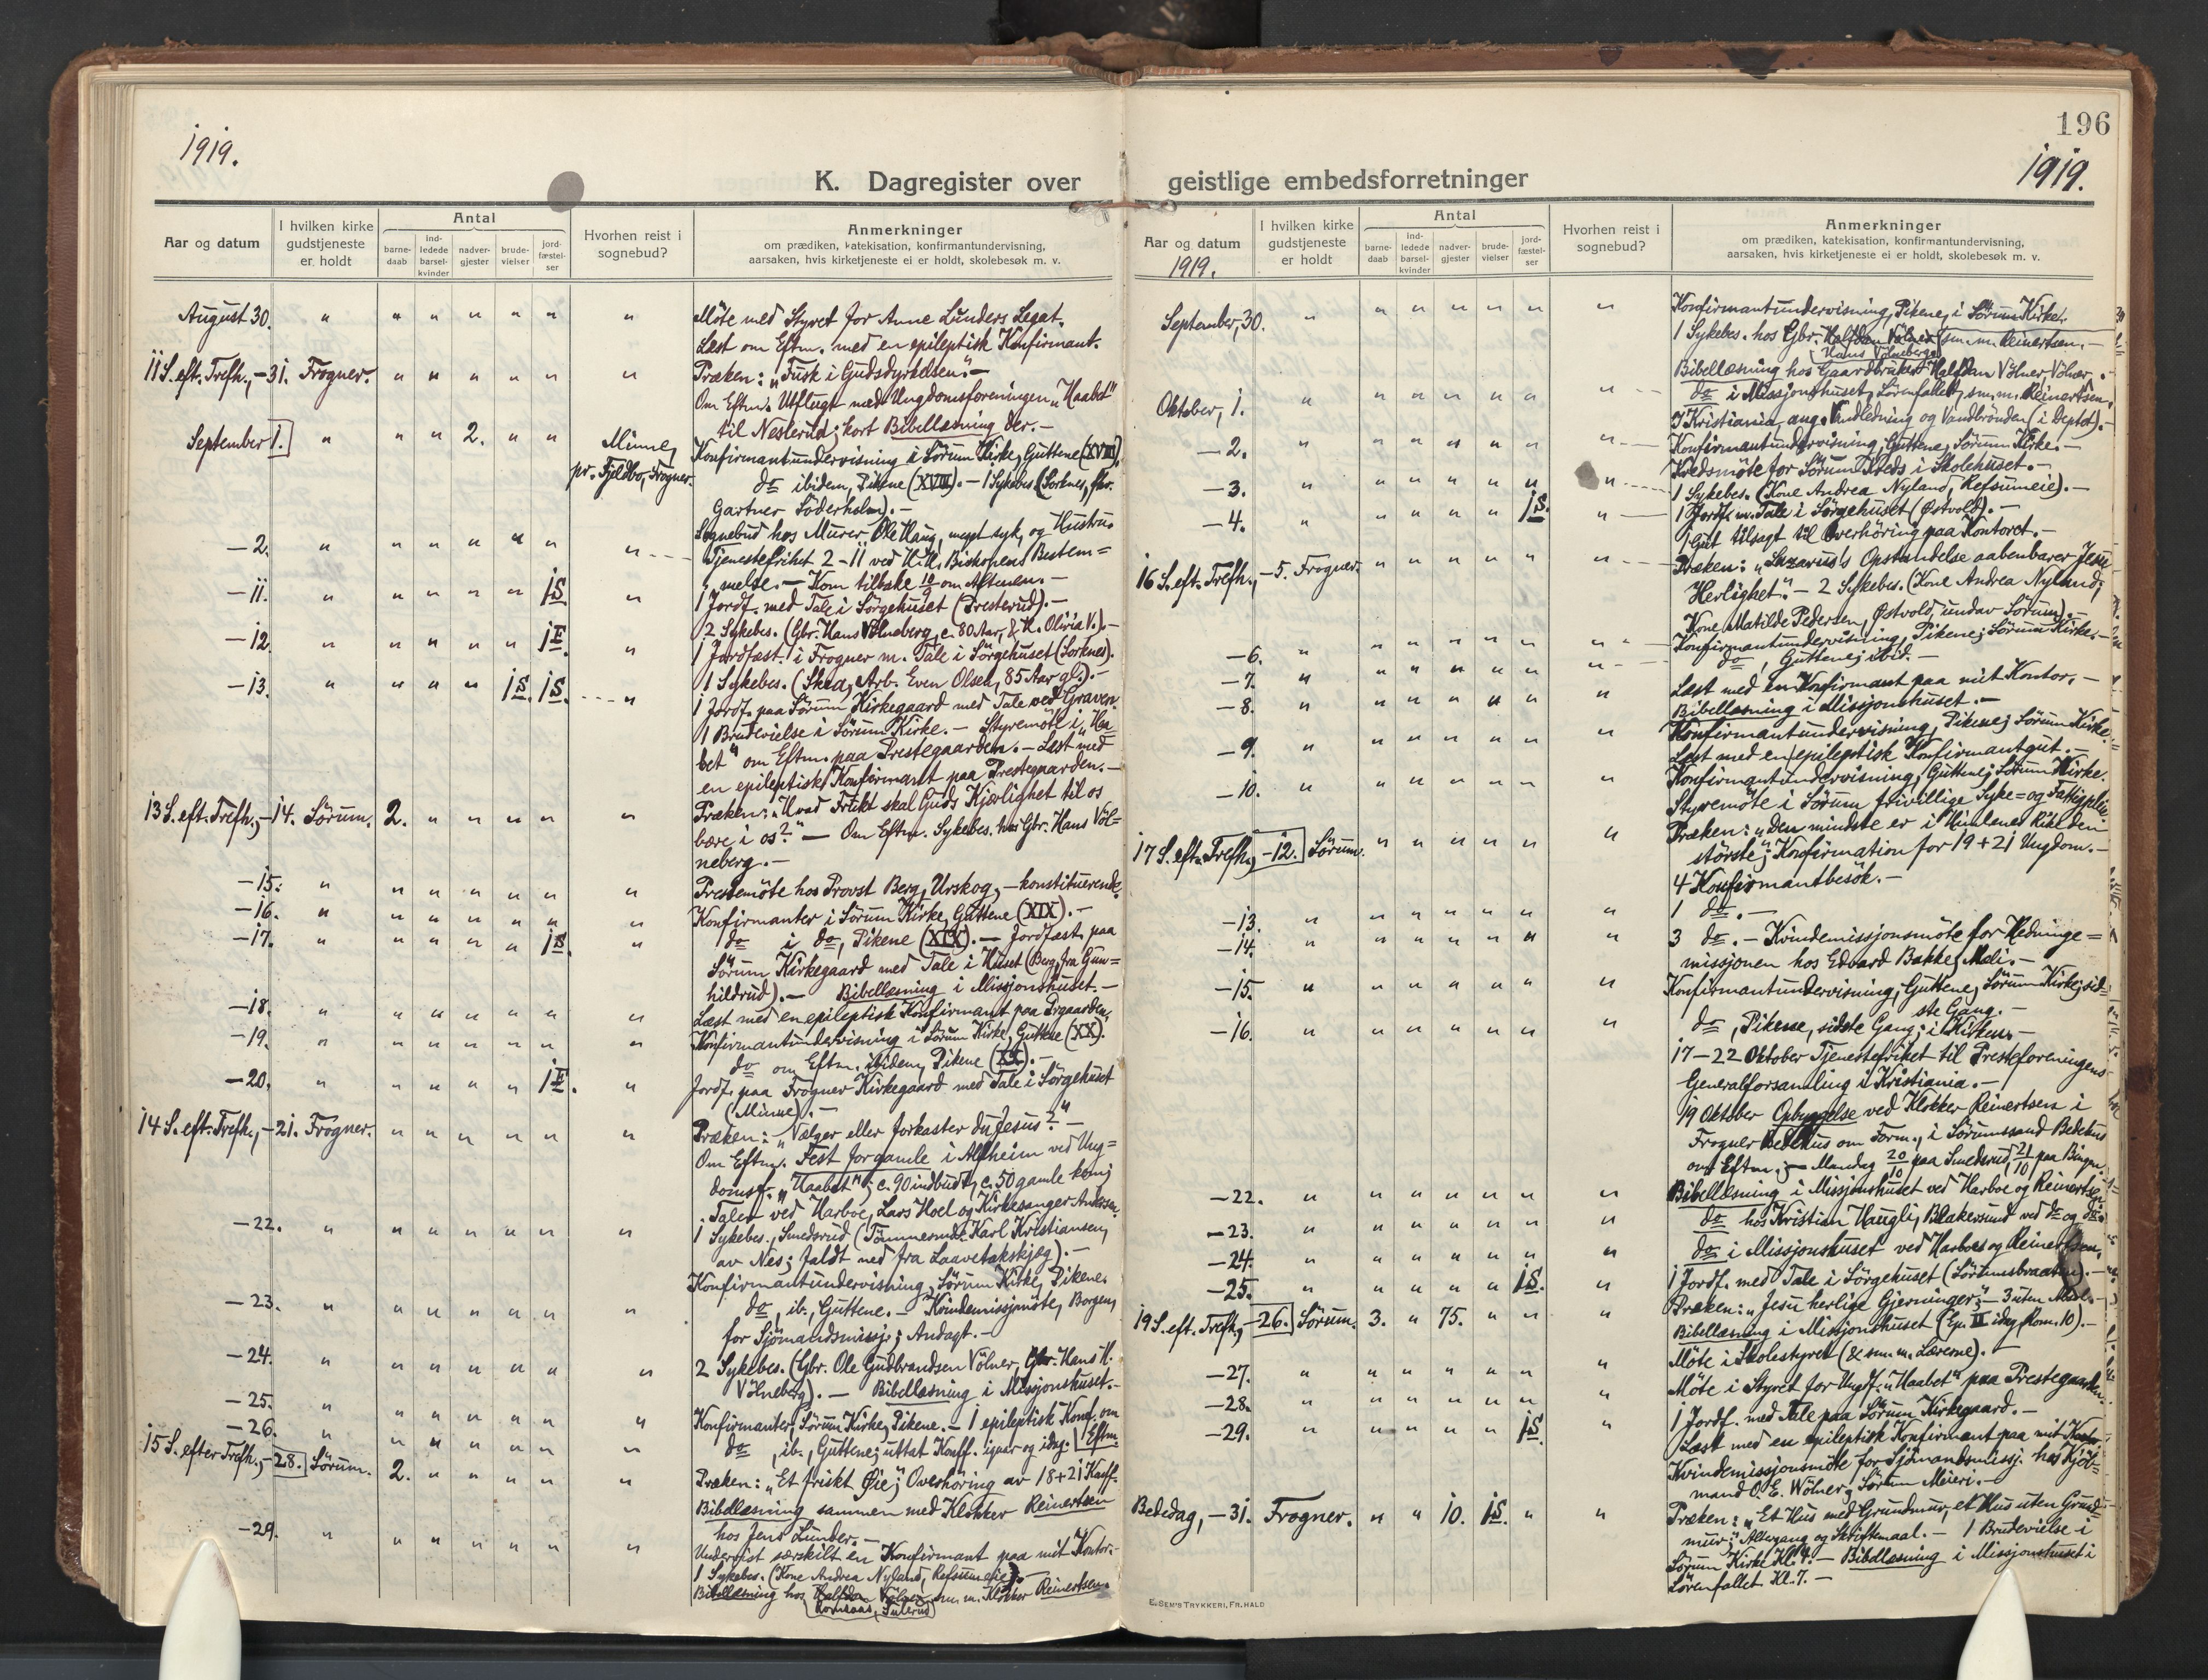 196
1919.
1919.
K. Dagregister over geistlige embedsforretninger
Aar og datum
I hvilken kirke gudstjeneste er holdt
Antal
barne-daab
ind-ledede barsel-kvinder
nadver-gjester
brude-vielser
jord-fæstel-ser
Hvorhen reist i sognebud?
Anmerkninger
om prædiken, katekisation, konfirmantundervisning,
aarsaken, hvis kirketjeneste ei er holdt, skolebesøk m. v.
August 30. " " " " " " "
Möte med Styret for Anne Lunders Legat.
Læst om Eftm. med en epileptisk Konfirmant.
11 S. eft. Trefh., -31. Frogner. " " " " " "
Præken: "Fusk i Gudsdyrkelsen". -
Om Eftm. Utflugt med Ungdomsforeningen "Haabet"
til Neslerud; kort Bibellæsning der. -
September 1. " " " 2. " " Minne,
pr. Fjeldbo, Frogner.
Konfirmantundervisning i Sörum Kirke, Guttene (XVIII),
do ibidem, Pikene (XVIII). - 1 Sykebes. (Sorknes,
Gartner Söderholm). -
Sognebud hos Murer Ole Haug, meget syk, og Hustru.
-2. " " " " " " "
Tjenestefrihet 2-11 ved H. H. Biskopens Bestem=
melse. - Kom tilbake 10/9 om Aftenen. -
-11. " " " " " 1S. "
1 Jordf. med Tale i Sörgehuset (Presterud). -
2 Sykebes. (Gbr. Hans Völneberg, c. 80 Aar, & K. Olivia V.). -
-12. " " " " " 1F. "
1 Jordfæst. i Frogner m. Tale i Sörgehuset (Sorknes).
1 Sykebes. (Skea, Arb. Even Olsen, 85 Aar gl.). -
-13. " " " " 1S. 1S. "
1 Jordf. paa Sörum Kirkegaard med Tale ved Graven.
1 Brudevielse i Sörum Kirke. - Styremöte i "Haa
bet" om Eftm. paa Prestegaarden. - Læst med
en epileptisk Konfirmant paa Prestegaarden. -
13 S. eft. Trefh., -14. Sörum. 2. " " " " "
Præken: "Hvad Frukt skal Guds Kjærlighet til os
bære i os?" - Om Eftm. Sykebes. hos Gbr. Hans Völ=
neberg. -
-15. " " " " " " "
Prestemöte hos Provst Berg, Urskog, - konstituerende.
-16. " " " " " " "
Konfirmanter i Sörum Kirke, Guttene (XIX). -
-17. " " " " " 1S. "
do i do, Pikene (XIX). - Jordfæst. paa
Sörum Kirkegaard med Tale i Huset (Berg, fra Gun=
hildrud). - Bibellæsning i Missjonshuset. -
-18. " " " " " " "
Læst med en epileptisk Konfirmant paa Prgaarden.
-19. " " " " " " "
Konfirmantundervisning i Sörum Kirke, Guttene (XX).
do om Eftm. ibidem, Pikene (XX). -
-20. " " " " " 1F. "
Jordf. paa Frogner Kirkegaard med Tale i Sörgehuset
(Minne). -
14 S. eft. Trefh., -21. Frogner. " " " " " "
Præken: "Vælger eller forkaster du Jesus?" -
Om Eftm. Fest for gamle i Alfheim ved Ung=
domsf. "Haabet"; c. 90 indbudt, c. 50 gamle kom;
Taler ved Harboe, Lars Hoel og Kirkesanger Andersen.
-22. " " " " " " "
1 Sykebes., Smedsrud (Tömmermd. Karl Kristiansen,
av Nes; faldt ned fra Laavetakskjæg). -
Konfirmantundervisning, Sörum Kirke, Pikene.
-23. " " " " " " "
do, ib., Guttene. - Kvindemissjmöte, Borgen,
for Sjömandsmissj.; Andagt. -
-24. " " " " " " "
2 Sykebes. (Gbr. Ole Gudbrandsen Völner, Gbr. Hans H.
Völneberg). - Bibellæsning i Missjonshuset. -
-25. " " " " " " "
Konfirmanter, Sörum Kirke, Pikene. - 1 epileptisk Konf. om
-26. " " " " " " "
do, ib., Guttene; uttat Konff. igaar og idag. Eftm.
15 S. efter Trefh., -28. Sörum. 2. " " " " "
Præken: "Et friskt Öie"; Overhöring av 18+21 Konff.
Bibellæsning sammen med Klokker Reinertsen
hos Jens Lunder. -
-29. " " " " " " "
Undervist særskilt en Konfirmant paa mit Kontor. -
1 Sykebes. (Kone Andrea Nyland, Refsumeie). -
Bibellæsning hos Halfdan Völner sm. m. Klokker Reinertsen.
Romsaas, Sulerud
Aar og datum
1919.
I hvilken kirke gudstjeneste er holdt
Antal
barne-daab
ind-ledede barsel-kvinder
nadver-gjester
brude-vielser
jord-fæstel-ser
Hvorhen reist i sognebud?
Anmerkninger
om prædiken, katekisation, konfirmantundervisning,
aarsaken, hvis kirketjeneste ei er holdt, skolebesøk m. v.
September, 30. " " " " " " "
Konfirmantundervisning, Pikene, i Sörum Kirke.
1 Sykebes. hos Gbr. Halfdan Völner sm. m. Reinertsen. -
Hans Völneberg
Bibellæsning hos Gaardbruker Halfdan Völner, Völner. -
Oktober, 1. " " " " " " "
do i Missjonshuset, Sörenfallet, sm. m. Reinertsen.
I Kristiania, ang. Vandledning og Vandbrönden (i Deptet). -
-2. " " " " " " "
Konfirmantundervisning, Guttene, Sörum Kirke. -
Kredsmöte for Sörum Kreds i Skolehuset. -
-3. " " " " " " "
1 Sykebes. (Kone Andrea Nyland, Refsumeie). -
-4. " " " " " 1S. "
1 Jordf. m. Tale i Sörgehuset (Østvold). -
1 Gut tilsagt til Overhöring paa Kontoret. -
16 S. eft. Trefh., -5. Frogner. " " " " " "
Præken: "Lazarus's Opstandelse aabenbarer Jesu
Herlighet". - 2 Sykebes. (Kone Andrea Nyland;
Kone Matilde Pedersen, Østvold, undav Sörum). -
-6. " " " " " " "
Konfirmantundervisning, Pikene; Sörum Kirke. -
-7. " " " " " " "
do, Guttene; ibid. -
-8. " " " " " " "
Læst med en Konfirmant paa mit Kontor. -
Bibellæsning i Missjonshuset. -
-9. " " " " " " "
Konfirmantundervisning, Pikene; Sörum Kirke.
Læst med en epileptisk Konfirmantgut. -
-10. " " " " " " "
Konfirmantundervisning, Guttene; Sörum Kirke.
Styremöte i Sörum frivillige Syke= og Fattigpleie.
17 S. eft. Trefh., -12. Sörum. " " " " " "
Præken: "Den mindste er i Himlenes Rike den
störste"; Konfirmation for 19+21 Ungdom. -
4 Konfirmantbesök. -
-13. " " " " " " "
1 do. -
-14. " " " " " " "
3 do. - Kvindemissjonsmöte for Hedninge=
missjonen hos Edvard Bakke, Mæli. -
-15. " " " " " " "
Konfirmantundervisning, Guttene, Sörum Kirke; sid=
ste Gang. -
-16. " " " " " " "
do, Pikene, sidste Gang; i Kirken. -
17-22 Oktober Tjenestefrihet til Presteforeningens
Generalforsamling i Kristiania. -
19 Oktober Opbyggelse ved Klokker Reinertsen i
Frogner Bedehus om Form., i Sörumssand Bedehus
om Eftm.; - Mandag 20/10 paa Smedsrud, 21/10 paa Bingen.
-22. " " " " " " "
Bibellæsning i Missjonshuset ved Harboe og Reinertsen.
-23. " " " " " " "
do hos Kristian Haugli, Blakersund ved do og do.
-24. " " " " " " "
do i Missjonshuset ved Harboe og Reinertsen.
-25. " " " " " 1S. "
1 Jordf. med Tale i Sörgehuset (Sörumsbraaten). -
19 S. eft. Trefh., -26. Sörum. 3. " 75. " " "
Præken: "Jesu herlige Gjerninger"; - 3 uten Alvor. -
Bibellæsning i Missjonshuset (Ep. II idag, Rom. 10). -
-27. " " " " " " "
Möte i Skolestyret (& sm. m. Lærerne). -
-28. " " " " " " "
Möte i Styret for Ungdf. "Haabet" paa Prestegaarden.
-29. " " " " " 1S. "
1 Jordf. med Tale paa Sörum Kirkegaard. -
Læst med en epileptisk Konfirmant paa mit Kontor.
Kvindemissjonsmöte for Sjömandsmissj. hos Kjöb=
mand O. E. Wölner, Sörum Meieri. -
Bededag, -31. Frogner. " " 10. 1S. " "
Præken: "Et Hus med Grundmur, et Hus uten Grund=
mur"; Altergang og Skriftemaal. - 1 Brudevielse i
Sörum Kirke Kl. 4. - Bibellæsning i Missjonshuset i
Sörenfallet Kl. 7. -
E. SEM'S TRYKKERI, FR.HALD